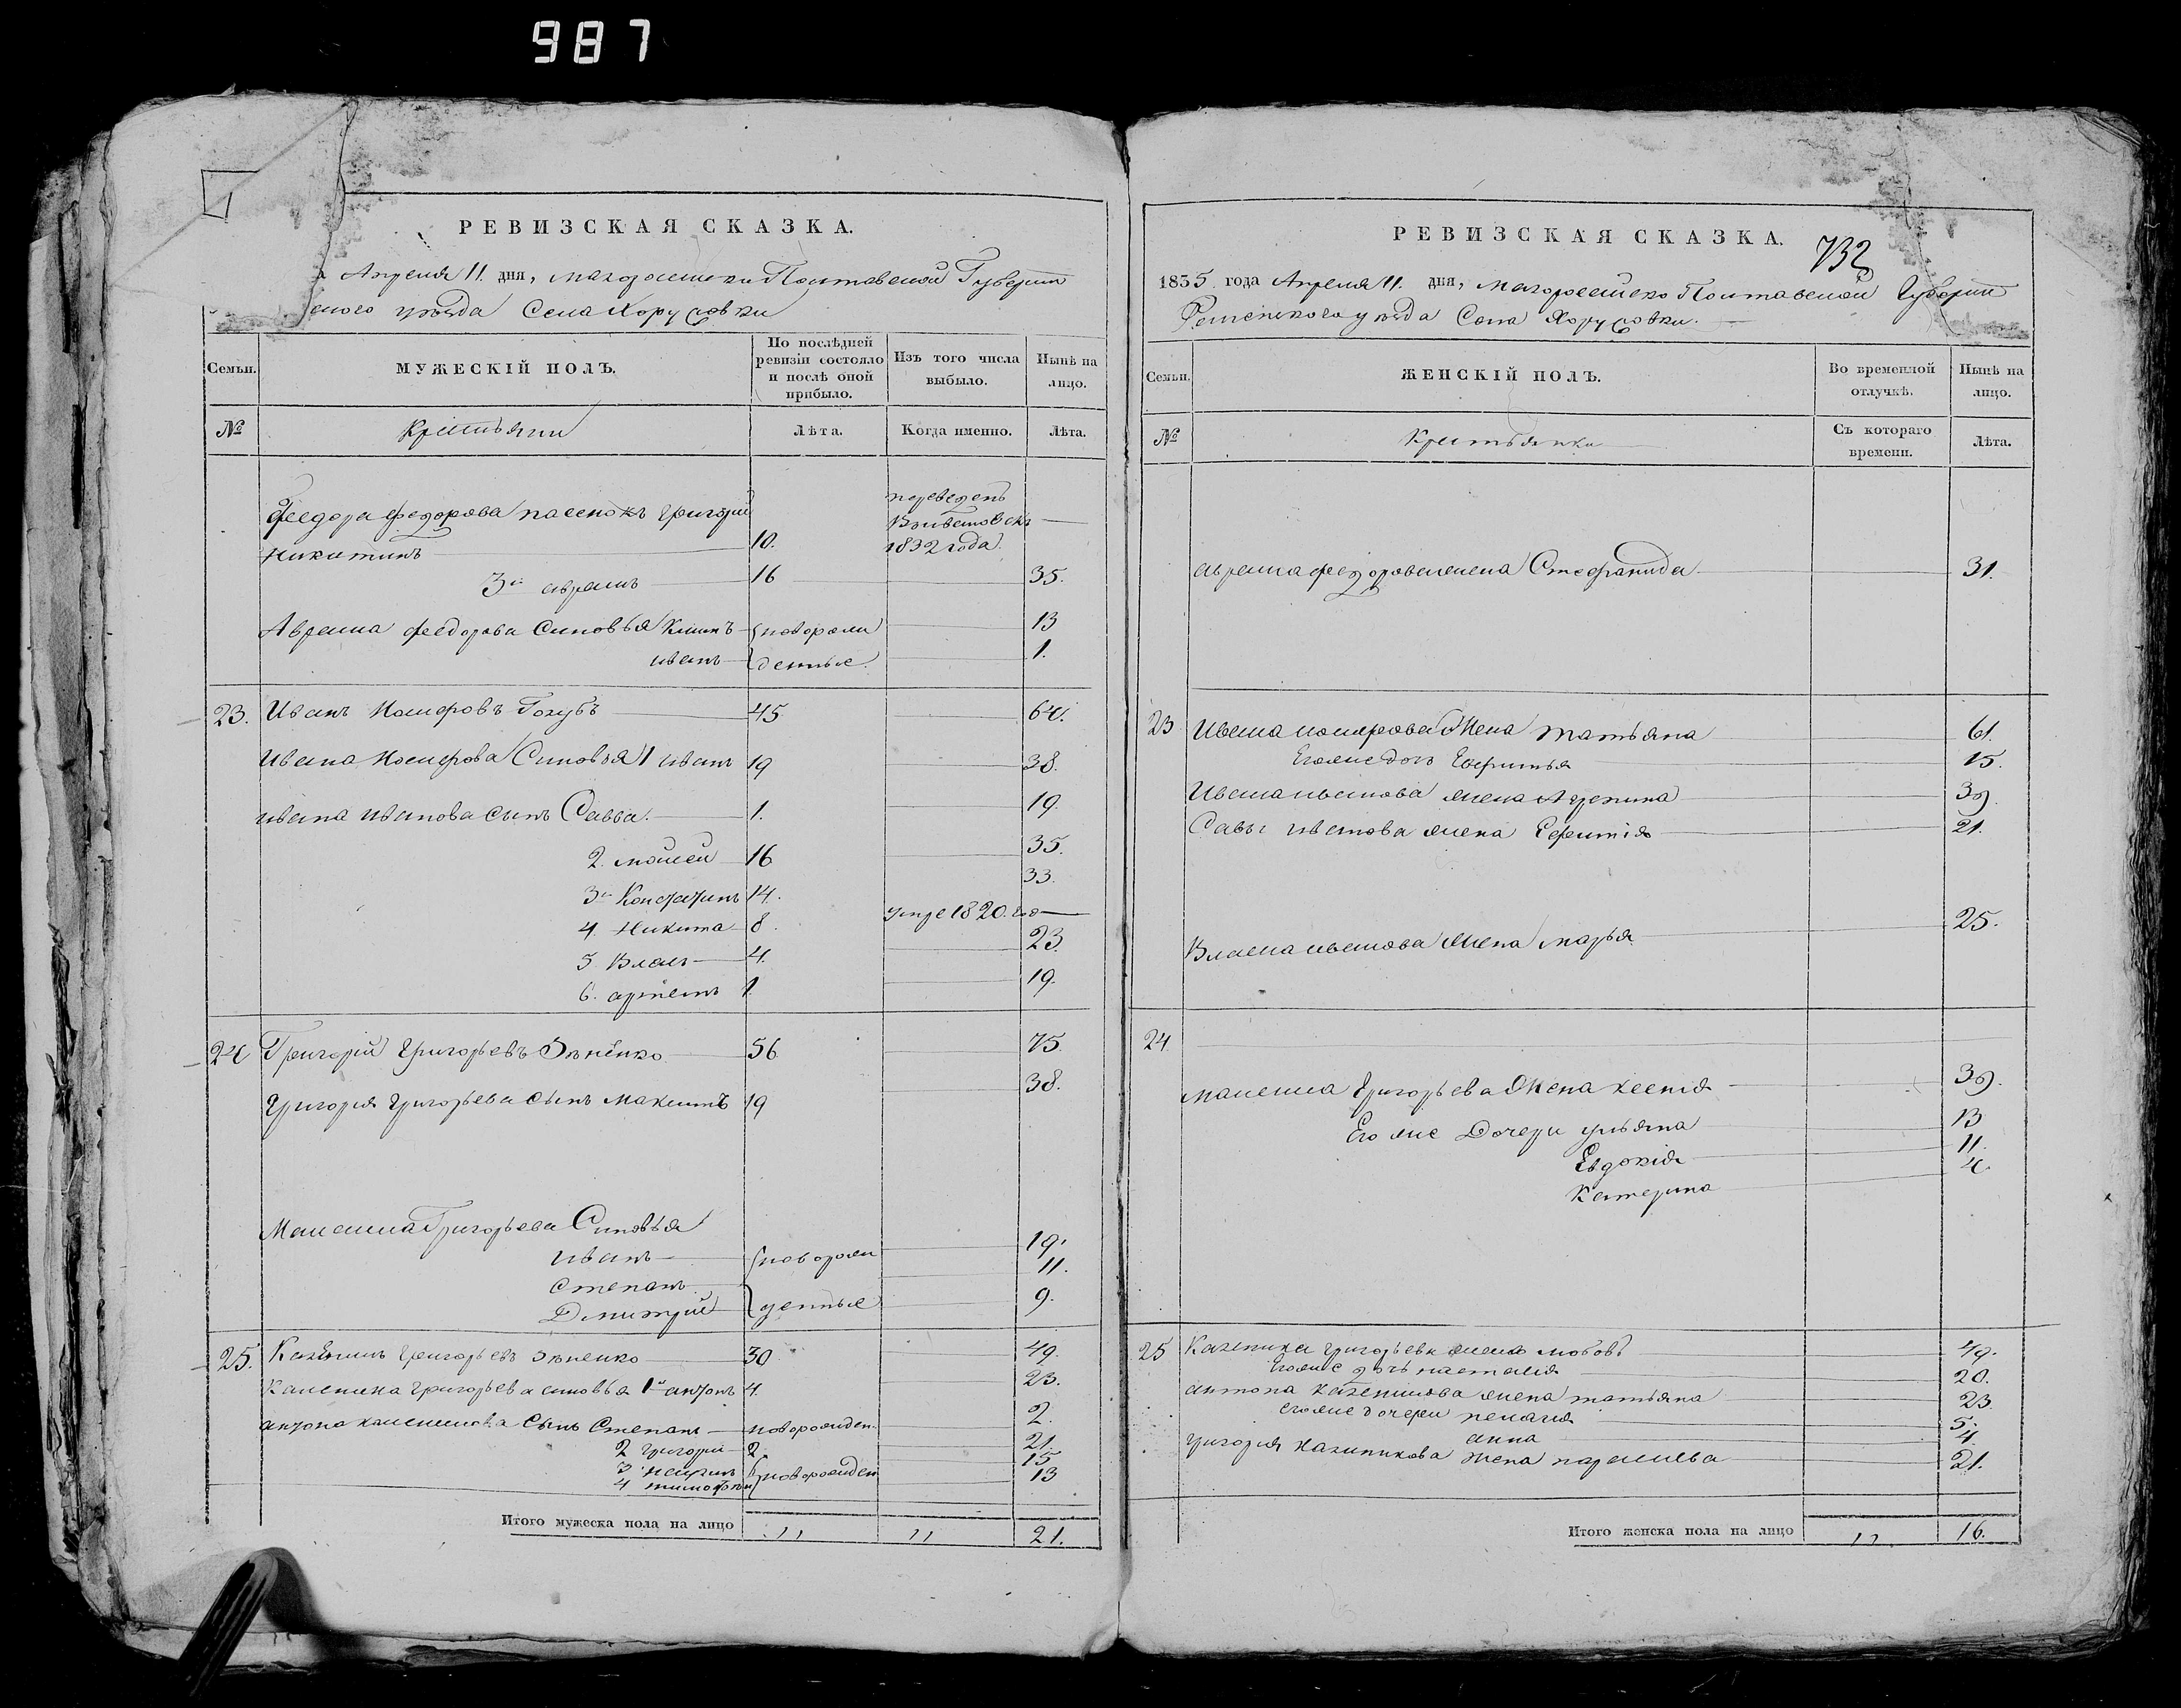 987
РЕВИЗСКАЯ СКАЗКА.
Апреля 11. дня, Малоросiйско Полтавской Губернiи
ского уѣзда Села Хоружовки
Семьи.
МУЖЕСКІЙ ПОЛЪ.
По послѣдней ревизіи состояло и послѣ оной прибыло.
Изъ того числа выбыло.
Нынѣ на лицо.
№
Крестьяни
Лѣта.
Когда именно.
Лѣта.
Феодора Федорова пасенокъ Григорiй
Никитинъ 10. переведенъ 1832 года.
3й аврамъ 16 35.
Аврама Феодорова Синовья Климъ новорож 13
иванъ денные. 1.
23. Иванъ Голубъ 45 64.
Ивана Синовья 1 иванъ 19 38.
ивана иванова сынъ Савва. 1. 19.
2. мойсей 16 35.
3й 14. 33.
4. Никита 8. умре 1820. год
5. Власъ 4. 23.
6. артемъ 1. 19.
24 Григорiй Григорьевъ Зѣненко 56 75.
Григорiя Григорьева сынъ Максимъ 19 38.
Максима Григорьева Синовья
иванъ новорож 19.
Степанъ 11.
Дмитрiй денные 9.
25. Григорьевъ Зѣненко 30 49.
Григорьева синовья 1й антонъ 4. 23.
антона сынъ Степанъ новорожден. 2.
2 Григорiй 2. 21.
3 новорожден 15
4 тимофѣй 13
Итого мужеска пола на лицо 〃 〃 21.
РЕВИЗСКАЯ СКАЗКА.
732
1835 года Апреля 11. дня, Малоросiйско Полтавской Губернiи
Роменского уѣзда Села Хоружовки.
Семьи.
ЖЕНСКІЙ ПОЛЪ.
Во временной отлучкѣ.
Нынѣ на лицо.
№
Крестьянки
Съ котораго времени.
Лѣта.
аврама Федорова жена Стефанида 31.
23 Ивана Жена татьяна 61.
Его же дочь 15.
Ивана иванова жена Агрепина 39.
Савы иванова жена 21.
Власа иванова Жена марья 25.
24
максима Григорьева Жена ксенiя 39.
Его же Дочери ульяна 13
Евдокiя 11.
Катерина 4.
25 Григорьева жена любовъ 49.
Его же дочь наталiя 20.
антона жена татьяна 23.
его же дочери пелагiя 5.
анна 4
григорiя жена 21.
Итого женска пола на лицо 〃 16.